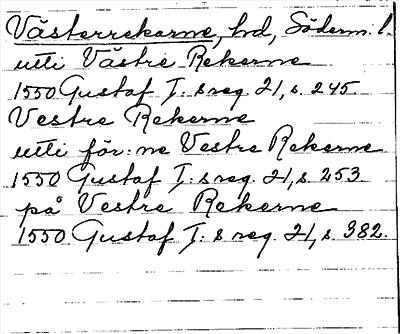 Västerrekarne, hd, Söderm. l.
utti Västre Rekerne
1550 Gustaf I: s reg. 21, s. 245.
Vestre Rekerne
utti för: ne Vestre Rekerne
1550 Gustaf I: s reg. 21, s. 253
på Vestre Rekerne
1550 Gustaf I: s reg. 21, s. 382.